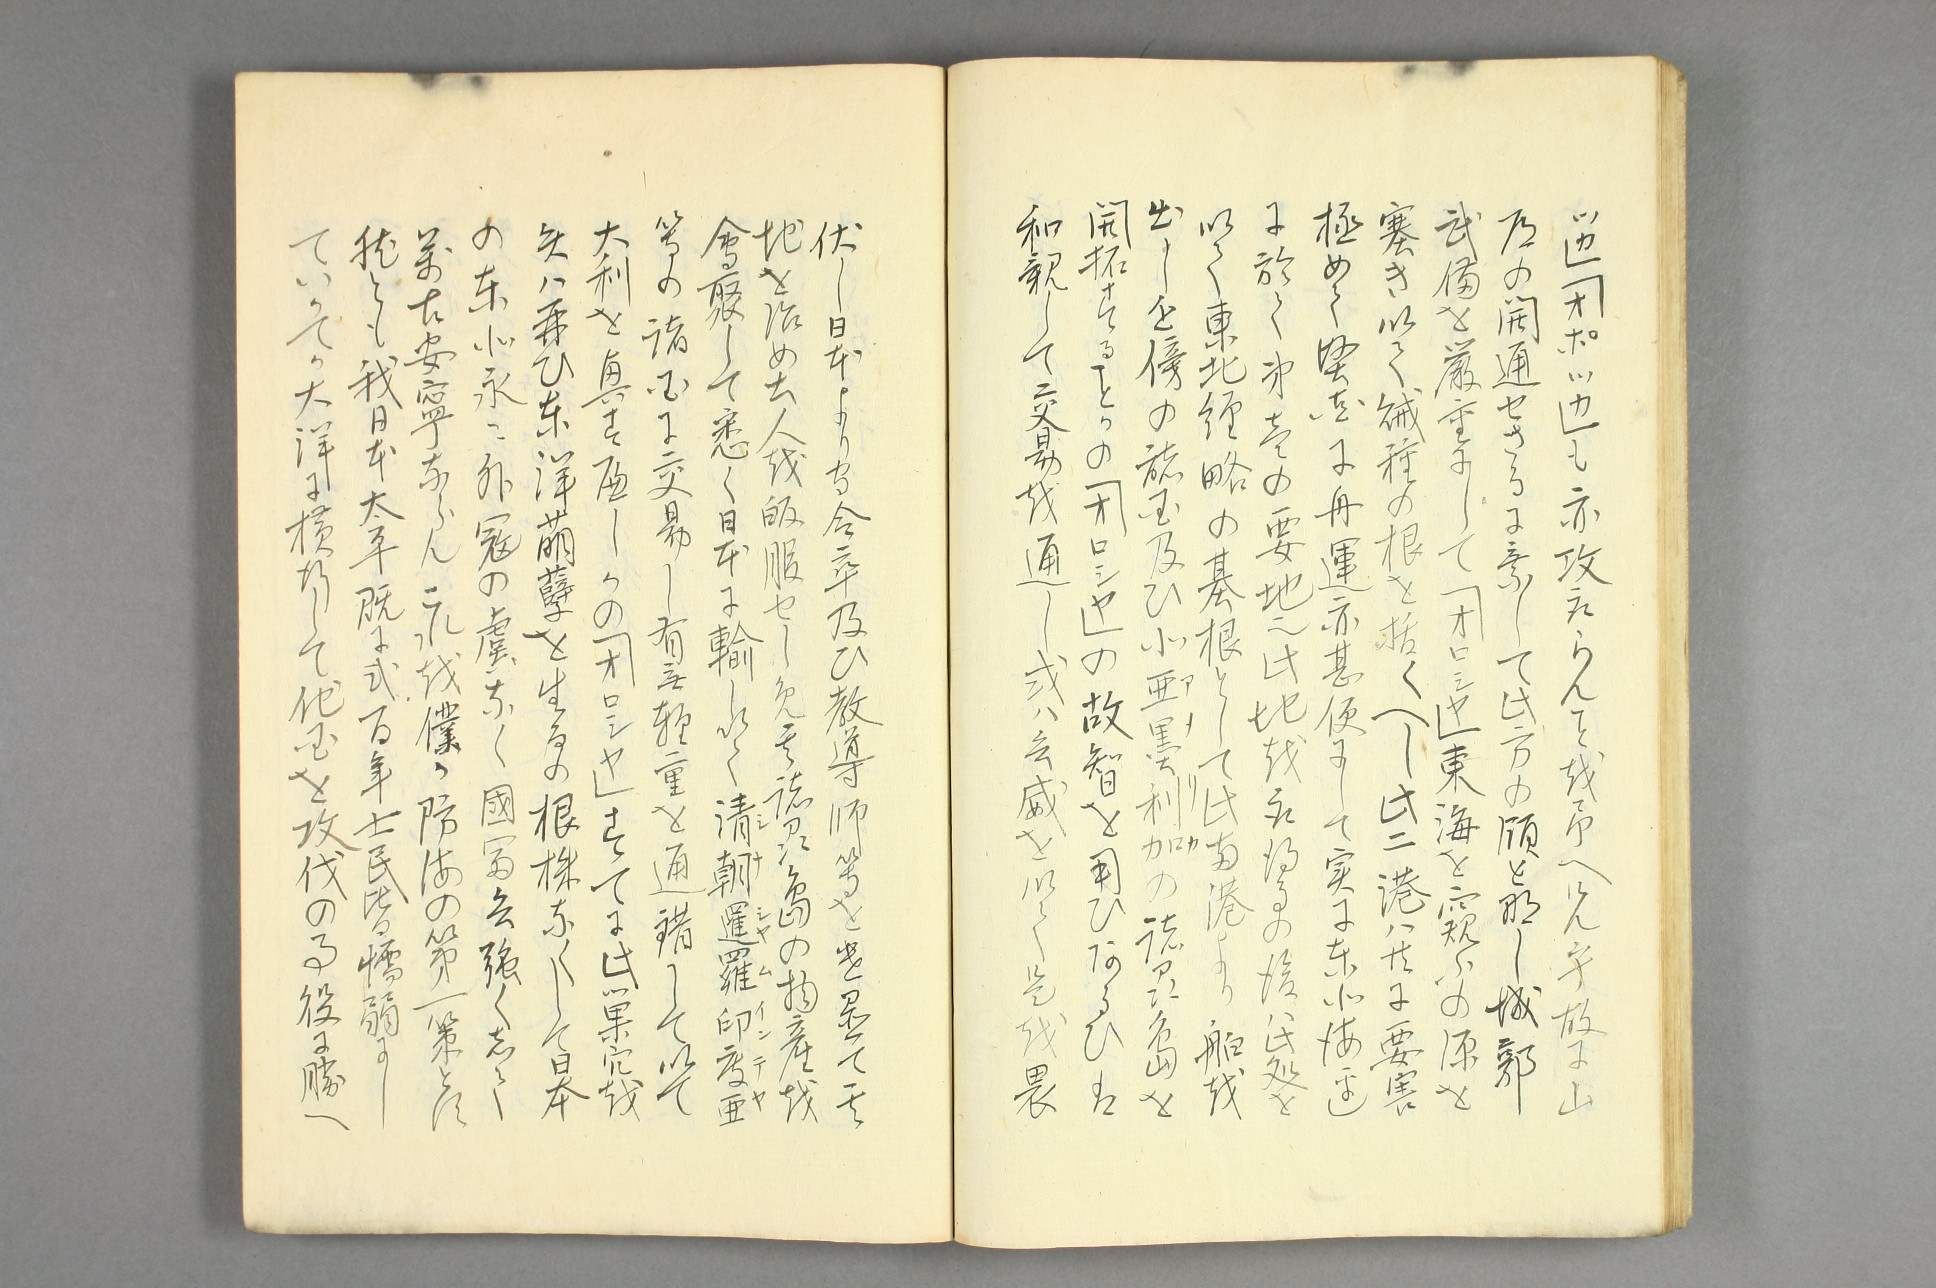 ツ辺「オホツ辺」も亦攻取らんを越る考へ見ん乎故に山
の開通せさるに乗して此方の願を那し城郭
武備を厳重にして「オロシヤ」東海を窺ふの源を
塞き以て絨種の根を括くへし此二港ハ共に要害
極めて堅固に舟運亦甚便にして実に東北海
に於て第壱の要地也此地越取得るの後ハ此処を
以て東北経略の基根として此両港より船越
出し近傍の諸国及ひ北亜墨利加の諸島を
開拓することかの「オロシヤ」の故智を用ひ
和親して交易越通し或ハ兵威を以て是越畏
伏し日本より守令卒及ひ教導師等を置て其
地を治め土人越皈服せしめ其諸島の物産越
會聚して悉く日本に輸し以て清朝暹羅印度亜
等の諸国に交易し有無軽重を通錯して以て
大利を興す遍しかの「オロシヤ」すてに此巣穴越
失ハ再ひ東洋萌蘖を生るの根株なくして日本
の東北永ニ外寇の虞なく國富兵強く志て
萬古安寧ならん是越僕か防海の第一策とす
然とも我日本太平既に弐百年士民皆懦弱にし
ていかてか大洋に横行して他国を攻伐の事役に勝へ